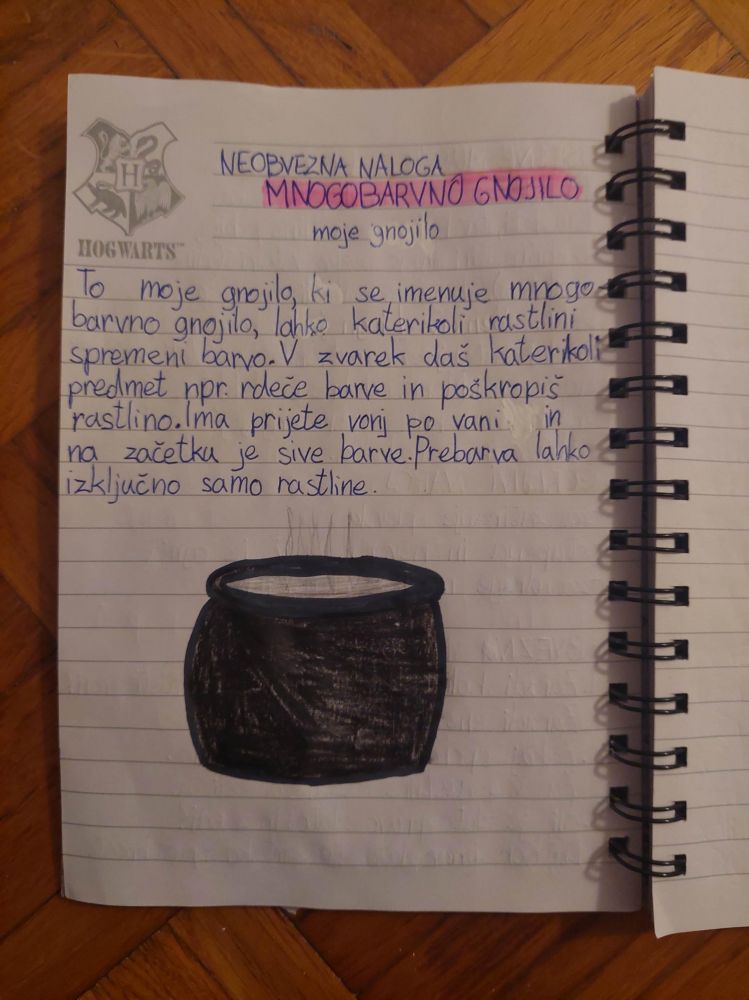 HOGWARTS™
H
NEOBVEZNA NALOGA
MNOGOBARVNO GNOJILO
moje gnojilo
To moje gnojilo, ki se imenuje mnogo-
barvno gnojilo, lahko katerikoli rastlini
spremeni barvo. V zvarek daš katerikoli
predmet npr. rdeče barve in poškropiš
rastlino. Ima prijete vonj po vani in
na začetku je sive barve. Prebarva lahko
izključno samo rastline.